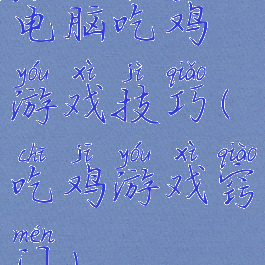 电脑吃鸡
yóu xì jì qiǎo
游戏技巧(
chī jī yóu xì qiào
吃鸡游戏窍
mén
门)